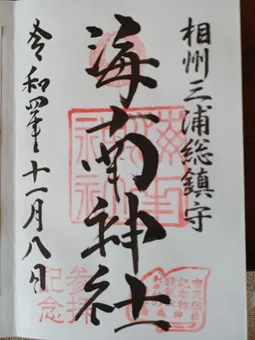 相州三浦総鎮守
海南神社
令和四年十一月八日
参拝
記念